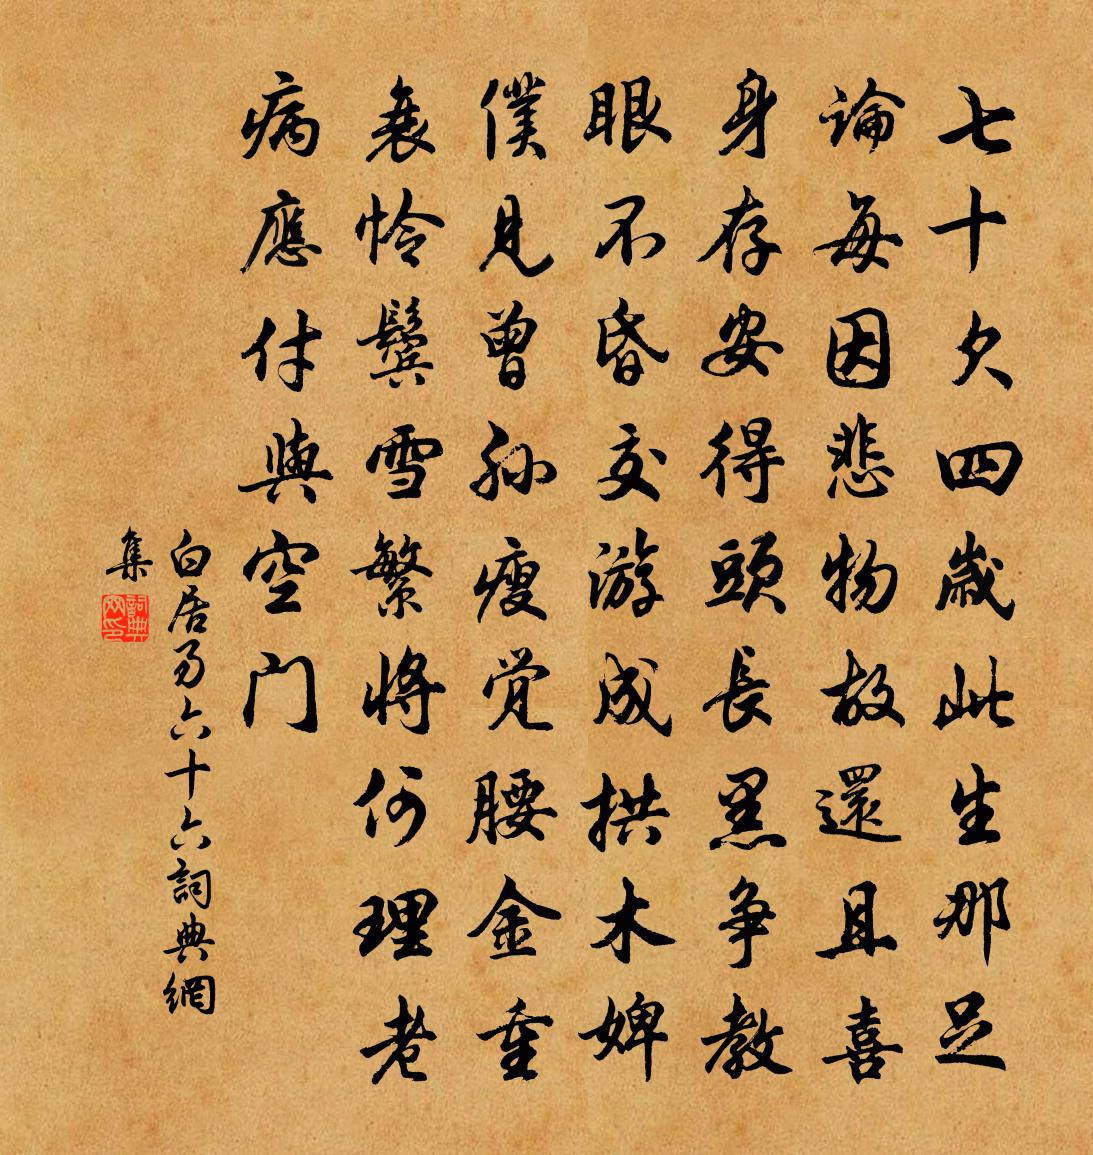 七十欠四歲此生那足
論每因悲物故還且喜
身存安得頭長黑爭教
眼不昏交游成拱木婢
僕見曾孫瘦覺腰金重
衰憐鬢雪繁將何理老
病應付與空門
白居易六十六詞典網
集
詞典网印